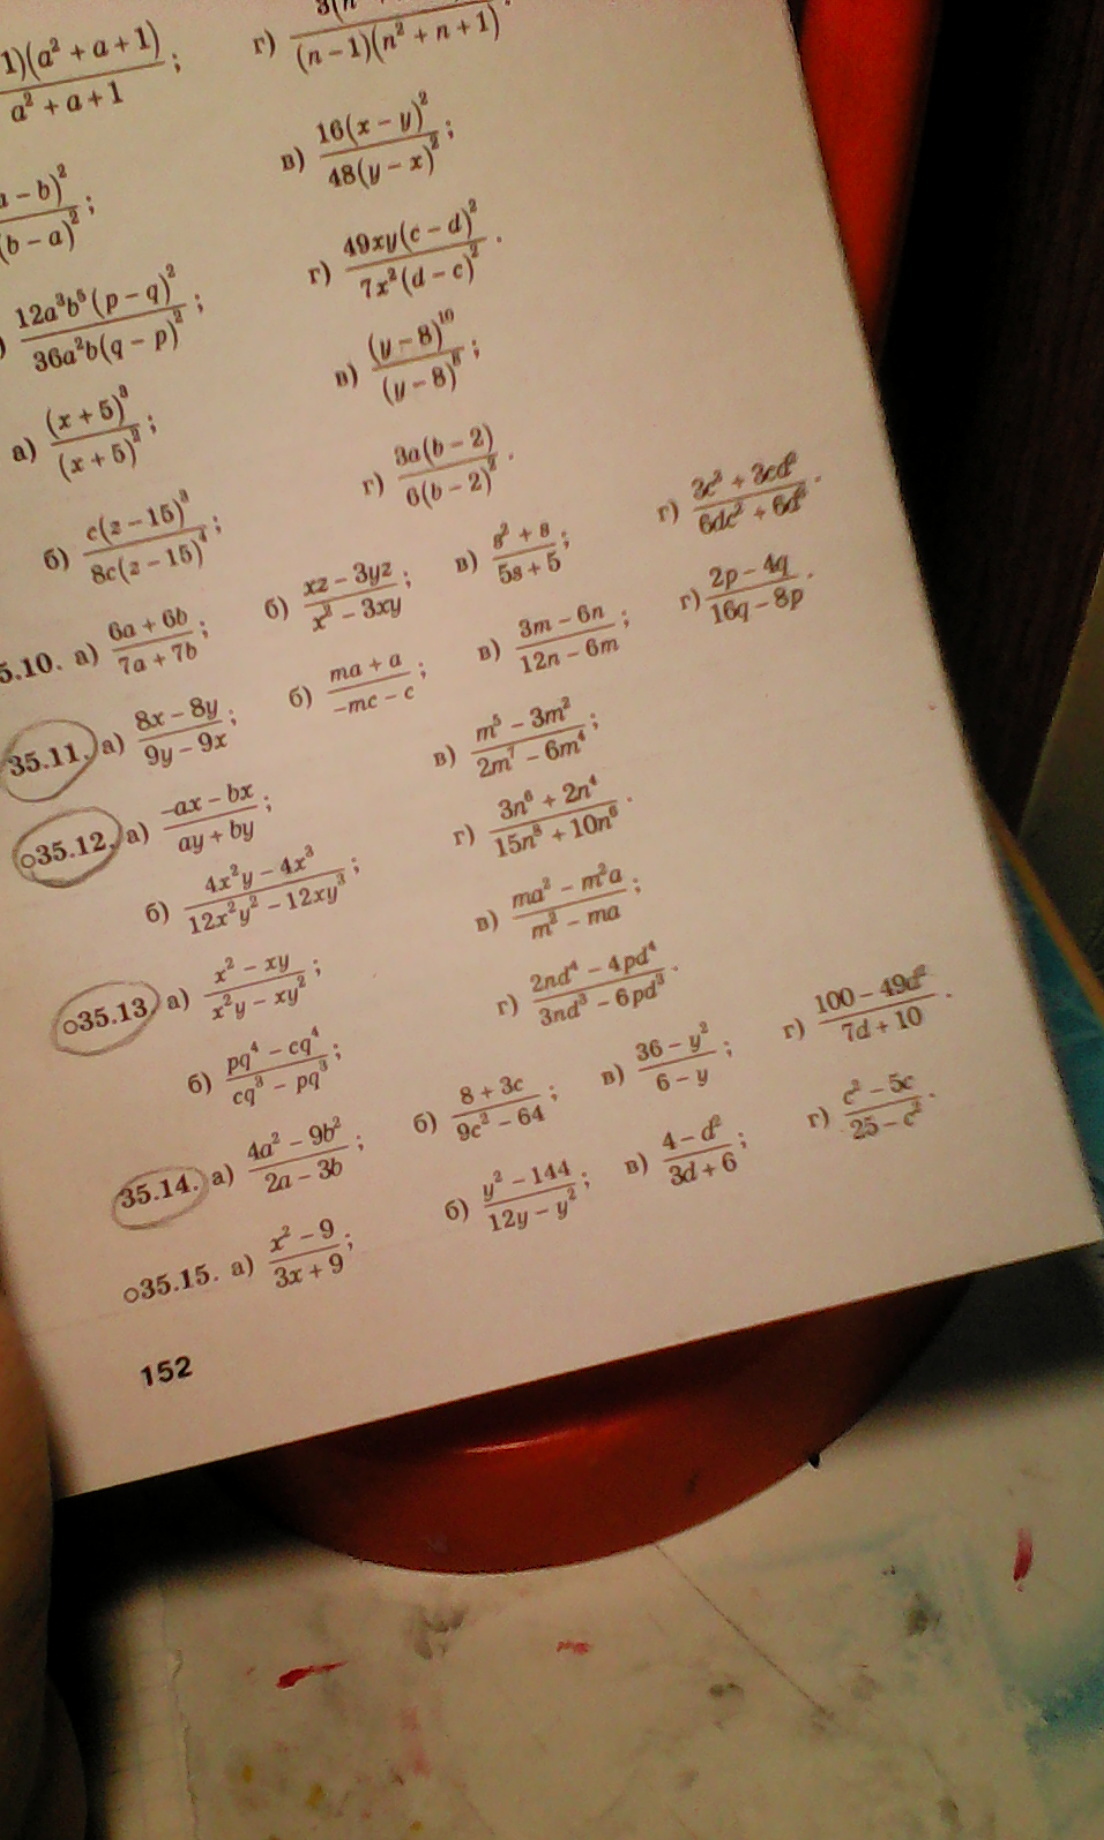 1)(a² + a + 1) / a² + a + 1; г) 3(n / (n − 1)(n² + n + 1).
− b)² / (b − a)²; в) 16(x − y)² / 48(y − x)²;
) 12a³b⁵(p − q)² / 36a²b(q − p)²; г) 49xy(c − d)² / 7x²(d − c)².
а) (x + 5)³ / (x + 5)²; в) (y − 8)¹⁰ / (y − 8)⁸;
б) c(z − 15)³ / 8c(z − 15)⁴; г) 3a(b − 2) / 6(b − 2)².
5.10. а) 6a + 6b / 7a + 7b; б) xz − 3yz / x² − 3xy; в) s² + s / 5s + 5; г) 3c³ + 3cd² / 6dc² + 6d³.
35.11. а) 8x − 8y / 9y − 9x; б) ma + a / −mc − c; в) 3m − 6n / 12n − 6m; г) 2p − 4q / 16q − 8p.
○35.12. а) −ax − bx / ay + by; в) m⁵ − 3m² / 2m⁷ − 6m⁴;
б) 4x²y − 4x³ / 12x²y² − 12xy³; г) 3n⁶ + 2n⁴ / 15n⁸ + 10n⁶.
○35.13. а) x² − xy / x²y − xy²; в) ma² − m²a / m² − ma;
б) pq⁴ − cq⁴ / cq³ − pq³; г) 2nd⁴ − 4pd⁴ / 3nd³ − 6pd³.
35.14. а) 4a² − 9b² / 2a − 3b; б) 8 + 3c / 9c² − 64; в) 36 − y² / 6 − y; г) 100 − 49d² / 7d + 10.
○35.15. а) x² − 9 / 3x + 9; б) y² − 144 / 12y − y²; в) 4 − d² / 3d + 6; г) c² − 5c / 25 − c².
152